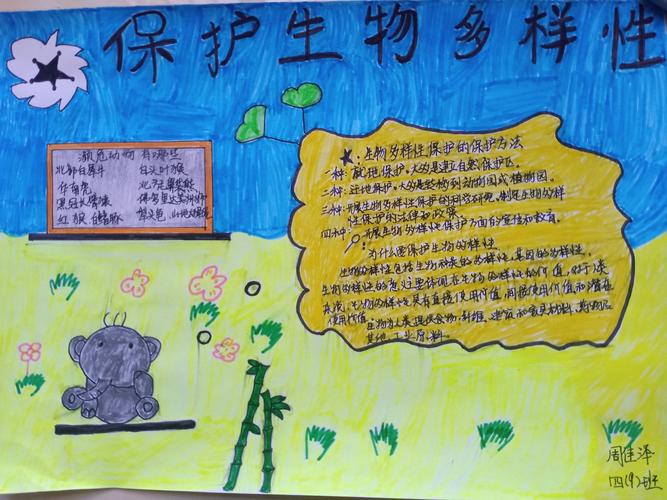 保护生物多样性
濒危动物有哪些
北部白犀牛 白头叶猴
红狼
生物多样性保护的保护方法
一种:就地保护,大多是建立自然保护区。
二种:迁地保护,大多是转移到动物园或植物园。
三种:开展生物多样性保护的科学研究,制定生物多样
性保护的法律和政策
四种:开展生物多样性保护方面的宣传和教育。
为什么要保护生物多样性
生物多样性包括生物种类的多样性、基因的多样性,
生物多样性的意义主要体现在生物多样性的价值,对于人类
来说,生物多样性具有直接使用价值,间接使用价值和潜在
使用价值。
生物为人类提供食物、纤维、建筑和家具材料、药物及
其他工业原料。
周佳泽
四(9)班